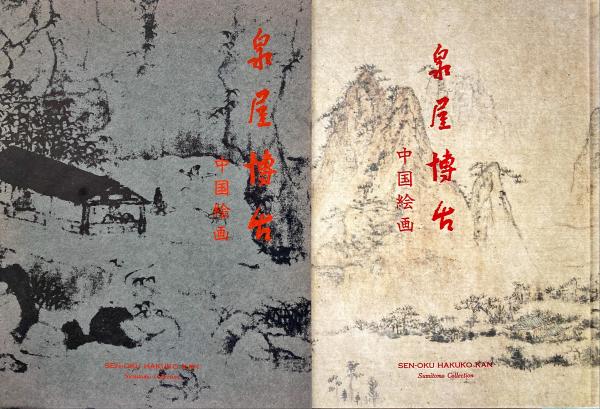 泉屋博古
中国絵画
SEN-OKU HAKUKO-KAN
Sumitomo Collection
泉屋博古
中国絵画
SEN-OKU HAKUKO-KAN
Sumitomo Collection